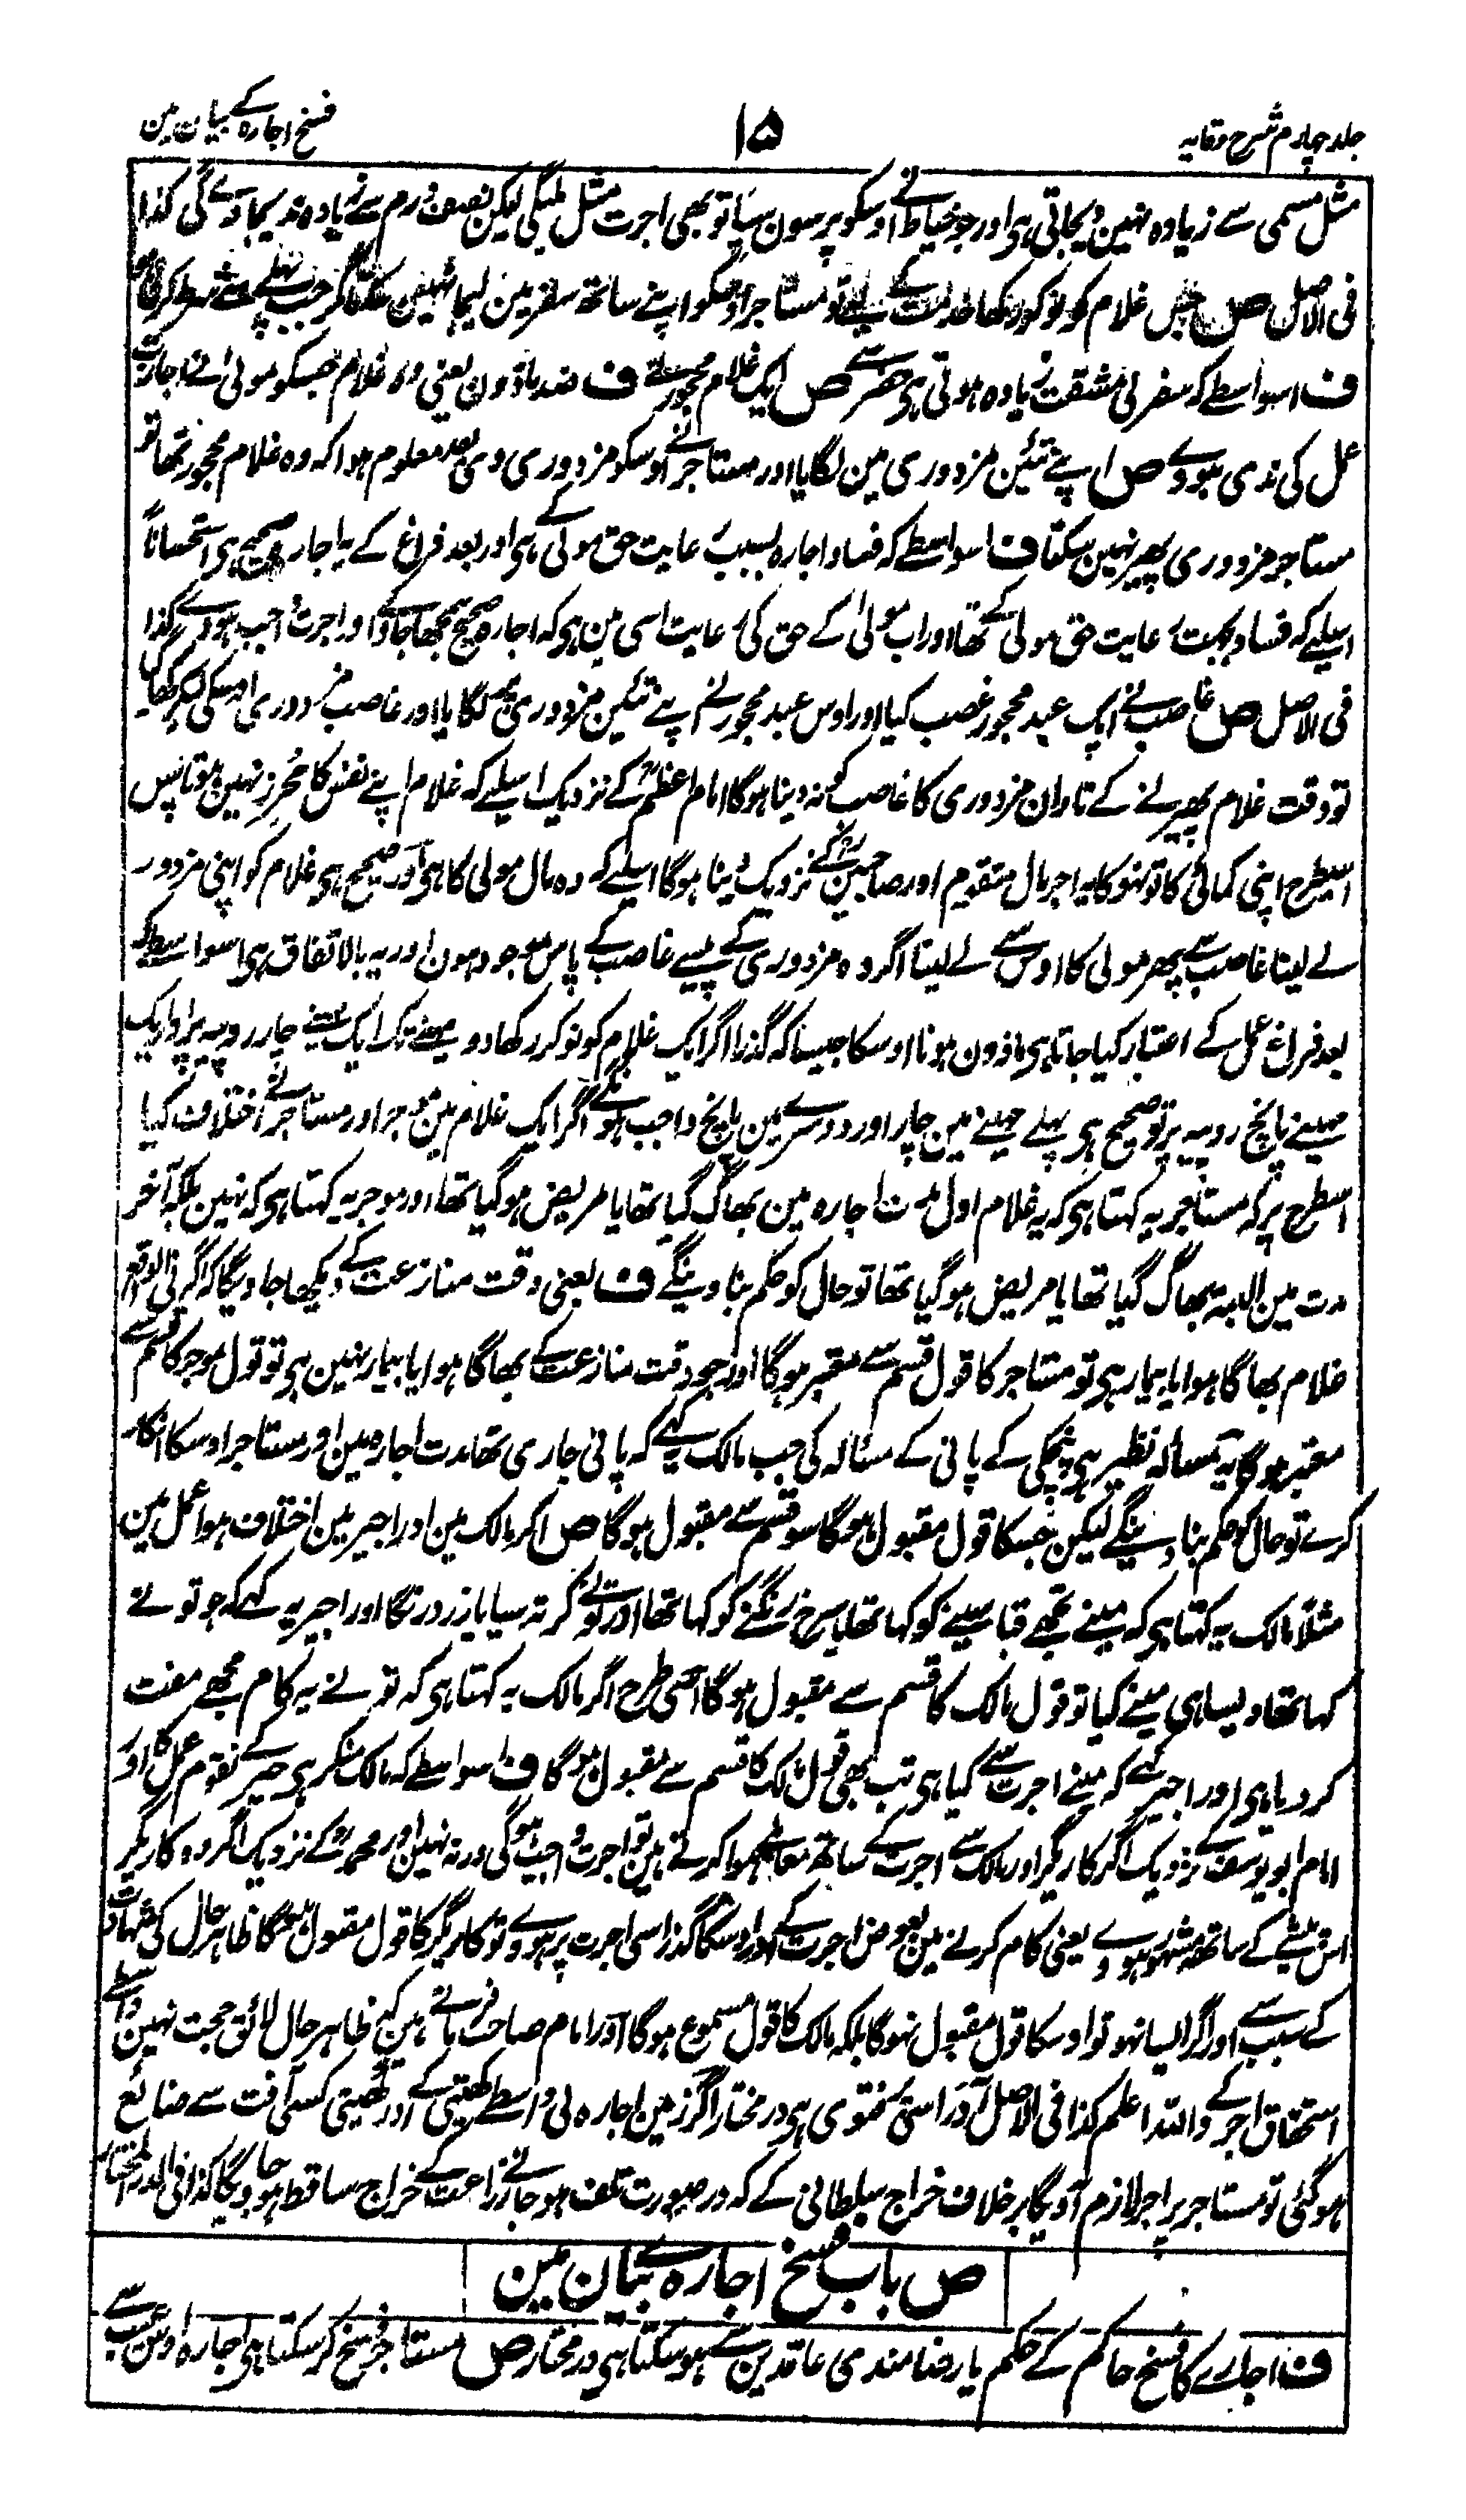 جلد چہارم شرح وقایہ
۱۵
فسخ اجارہ کے بیان مین
مثل مسمی سے زیادہ نہین دیجاتی ہی اور جو خیاط نے اوسکو پرسون سیا تو بھی اجرت مثل ملیگی لیکن نصف درم سے زیادہ ندیجاوے گی کذا
فی الاصل ص جس غلام کو نوکر رکھا خدمت کے لیے تو مستاجر اوسکو اپنے ساتھ سفر مین لیجا نہین سکتا مگر جب پہلے سے شرط کر لے
ف اسواسطے کہ سفر کی مشقت زیادہ ہوتی ہی حضر سے ص ایک غلام محجور نے ف ضد ماذون یعنی وہ غلام جسکو مولی نے اجازت
عمل کی ندی ہووے ص اپنے تئین مزدوری مین لگایا اور مستاجر نے اوسکو مزدوری دی بعد معلوم ہوا کہ وہ غلام محجور تھا تو
مستاجر مزدوری پھیر نہین سکتا ف اسواسطے کہ فساد اجارہ بسبب رعایت حق مولی کے ہی اور بعد فراغ کے یہ اجارہ صحیح ہی استحساناً
اسلیے کہ فساد بجہت رعایت حق مولی کے تھا اور اب مولیٰ کے حق کی رعایت اسی مین ہی کہ اجارہ صحیح سمجھا جاوے اور اجرت واجب ہووے کذا
فی الاصل ص غاصب نے ایک عبد محجور غصب کیا اور اوس عبد محجور نے اپنے تئین مزدوری مین لگایا اور غاصب مزدوری اوسکی لیکر کھا گیا
تو وقت غلام پھیرنے کے تاوان مزدوری کا غاصب کو نہ دینا ہوگا امام اعظمؒ کے نزدیک اسلیے کہ غلام اپنے نفس کا محرز نہین ہوتا پس
اسیطرح اپنی کمائی کا تو نہوگا یہ اجر مال متقوم اور صاحبینؒ کے نزدیک دینا ہوگا اسلیے کہ وہ مال مولی کا ہی اور صحیح ہی غلام کو اپنی مزدوری
لے لینا غاصب سے پھر مولی کا اوس سے لے لینا اگر وہ مزدوری کے پیسے غاصب کے پاس موجود ہون اور یہ بالاتفاق ہی اسواسطے کہ
بعد فراغ عمل کے اعتبار کیا جاتا ہی ماذون ہونا اوسکا جیسا کہ گذرا اگر ایک غلام کو نوکر رکھا دو مہینے تک ایک مہینے چار روپیہ پر اور ایک
مہینے پانچ روپیہ پر تو صحیح ہی پہلے مہینے مین چار اور دوسرے مین پانچ واجب ہونگے اگر ایک غلام مین موجر اور مستاجر نے اختلاف کیا
اسطرح پر کہ مستاجر یہ کہتا ہی کہ یہ غلام اول مدت اجارہ مین بھاگ گیا تھا یا مریض ہوگیا تھا اور موجر یہ کہتا ہی کہ نہین بلکہ آخر
مدت مین البتہ بھاگ گیا تھا یا مریض ہوگیا تھا تو حال کو حکم بناوینگے ف یعنی وقت منازعت کے دیکھا جاویگا کہ اگر فی الواقع
غلام بھاگا ہوا یا بیمار ہی تو مستاجر کا قول قسم سے معتبر ہوگا اور جو وقت منازعت کے بھاگا ہوا یا بیمار نہین ہی تو قول موجر کا قسم سے
معتبر ہوگا یہ مسالہ نظیر ہی پنچکی کے پانی کے مسئالہ کی جب مالک یہ کہے کہ پانی جاری تھا مدت اجارہ مین اور مستاجر اوسکا انکار
کرے تو حال کو حکم بناوینگے لیکن جسکا قول مقبول ہوگا سو قسم سے مقبول ہوگا ص اگر مالک مین اور اجیر مین اختلاف ہوا عمل مین
مثلاً مالک یہ کہتا ہی کہ مینے تجھے قبا سینے کو کہا تھا یا سرخ رنگنے کو کہا تھا اور تونے کرتہ سیا یا زرد رنگا اور اجیر یہ کہے کہ جو تو نے
کہا تھا ویسا ہی مینے کیا تو قول مالک کا قسم سے مقبول ہوگا اسی طرح اگر مالک یہ کہتا ہی کہ تو نے یہ کام مجھے مفت
کر دیا ہی اور اجیر کہے کہ مینے اجرت سے کیا ہی تب بھی قول مالک کا قسم سے مقبول ہوگا ف اسواسطے کہ مالک منکر ہی اجیر کے تقوم عمل کا اور
امام ابو یوسفؒ کے نزدیک اگر کاریگر اور مالک سے اجرت کے ساتھ معاملے ہوا کرتے ہین تو اجرت واجب ہوگی ورنہ نہین اور محمدؒ کے نزدیک اگر وہ کاریگر
اس پیشے کے ساتھ مشہور ہووے یعنی کام کرنے مین بعوض اجرت کے اور اوسکا گذر اسی اجرت پر ہووے تو کاریگر کا قول مقبول ہوگا ظاہر حال کی شہادت
کے سبب سے اور اگر ایسا نہو تو اوسکا قول مقبول نہوگا بلکہ مالک کا قول مسموع ہوگا اور امام صاحب فرماتے ہین کہ ظاہر حال لائق حجت نہین واسطے
استحقاق اجر کے واللہ اعلم کذا فی الاصل اور اسی پر فتوی ہی در مختار اگر زمین اجارہ لی واسطے کھیتی کے اور کھیتی کسی آفت سے ضائع
ہوگئی تو مستاجر پر اجر لازم آویگا برخلاف خراج سلطانی کے کہ در صورت تلف ہو جانے زراعت کے خراج ساقط ہو جاویگا کذا فی الدر المختار
ص باب فسخ اجارہ کے بیان مین
ف اجارے کا فسخ حاکم کے حکم یا رضامندی عاقدین سے ہوسکتا ہی در مختار ص مستاجر فسخ کرسکتا ہی اجارہ اوس عیب سے